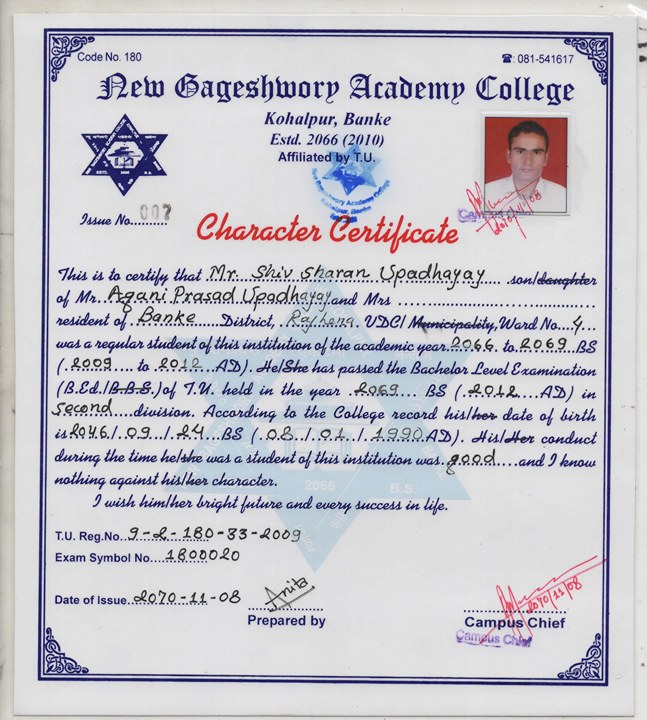 Code No. 180
☎: 081-541617
New Gageshwory Academy College
Kohalpur, Banke
Estd. 2066 (2010)
Affiliated by T.U.
Issue No. 007
Campus Chief
2070/11/08
Character Certificate
This is to certify that Mr. Shiv Sharan Upadhayay son/daughter
of Mr. Agani Prasad Upadhayay and Mrs ........................
resident of Banke District, Rajhena VDC/ Municipality, Ward No. 4
was a regular student of this institution of the academic year 2066 to 2069 BS
(2009 to 2012 AD). He/She has passed the Bachelor Level Examination
(B.Ed./B.B.S.) of T.U. held in the year 2069 BS (2012 AD) in
Second division. According to the College record his/her date of birth
is 2046/09/24 BS (08/01/1990 AD). His/Her conduct
during the time he/she was a student of this institution was good and I know
nothing against his/her character.
I wish him/her bright future and every success in life.
T.U. Reg.No. 9-2-180-33-2009
Exam Symbol No. 1800020
Date of Issue. 2070-11-08
Anita
Prepared by
2070/11/08
Campus Chief
Campus Chief
2066 B.S.